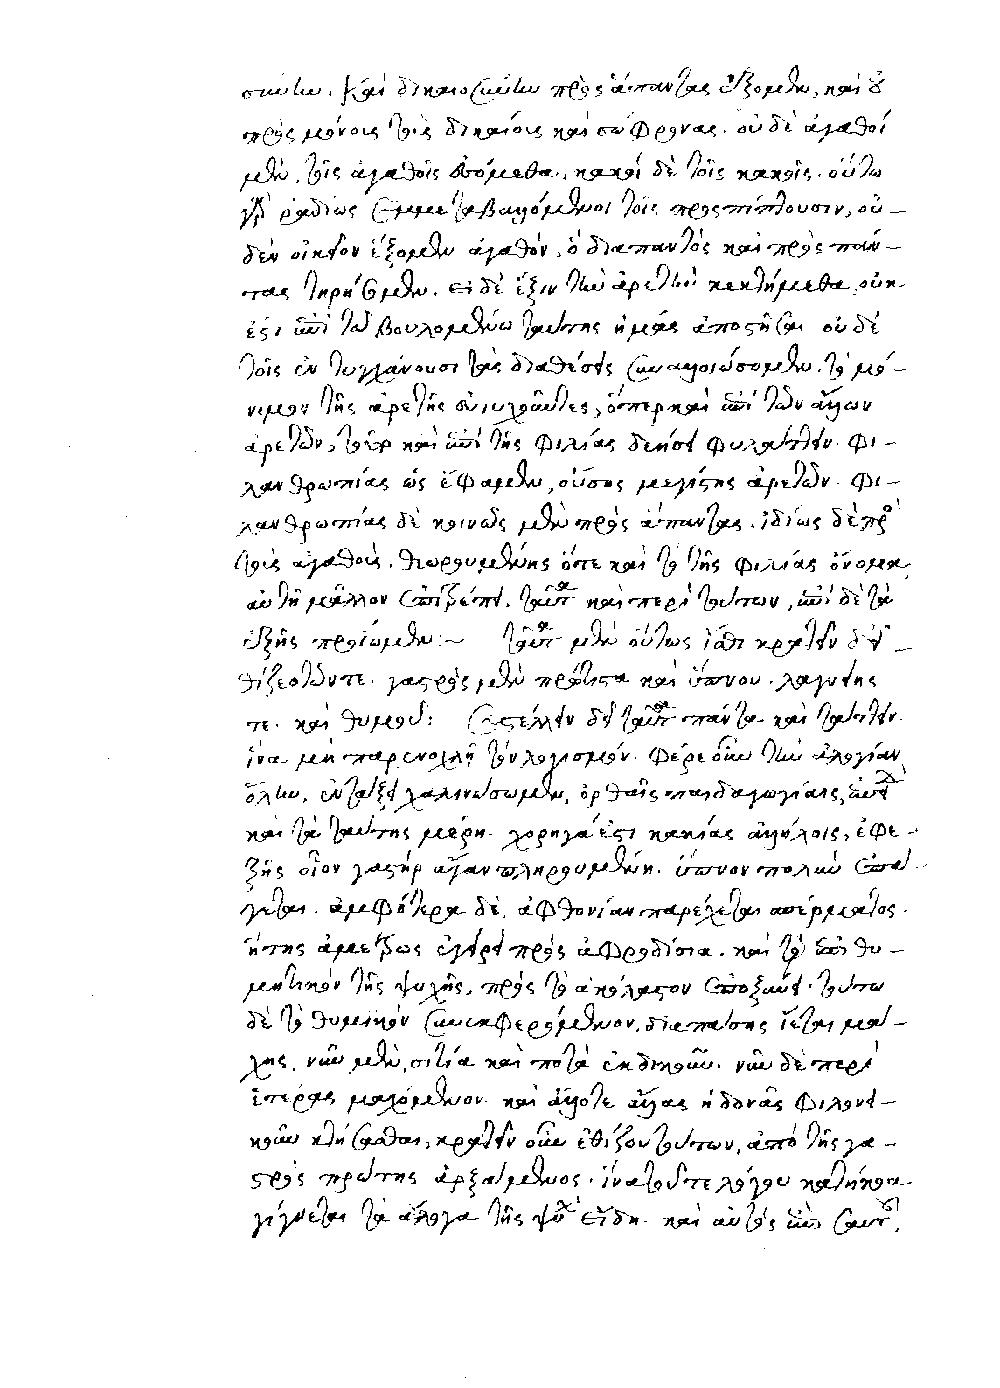 σύνην. Καὶ δικαιοσύνην πρὸς ἅπαντας ἕξομεν, καὶ οὐ
πρὸς μόνους τοὺς δικαίους καὶ σώφρονας. οὐδὲ ἀγαθοὶ
μὲν, τοῖς ἀγαθοῖς ἐσόμεθα, κακοὶ δὲ τοῖς κακοῖς. οὕτω
γὰρ ῥαδίως συμμεταβαλλόμενοι τοῖς προσπίπτουσιν, οὐ-
δὲν οἰκεῖον ἕξομεν ἀγαθὸν, ὃ διαπαντὸς καὶ πρὸς πάν-
τας τηρήσομεν. εἰ δὲ ἕξιν τὴν ἀρετὴν κεκτήμεθα, οὐκ
ἔστι ἐπὶ τοῦ βουλομένου ταύτης ἡμᾶς ἀποστῆσαι οὐδὲ
τοῖς ἐντυγχάνουσι τὰς διαθέσεις συναλλοιώσομεν. τὸ μό-
νιμον τῆς ἀρετῆς εὐτυχοῦντες, ὅπερ καὶ ἐπὶ τῶν ἄλλων
ἀρετῶν, τοῦτο καὶ ἐπὶ τῆς φιλίας δεήσει φυλάττειν. φι-
λανθρωπίας ὡς ἔφαμεν, οὔσης μεγίστης ἀρετῶν. φι-
λανθρωπίας δὲ κοινῶς μὲν πρὸς ἅπαντας. ἰδίως δὲ πρὸς
τοὺς ἀγαθοὺς. θεωρουμένης ὥστε καὶ τὸ τῆς φιλίας ὄνομα
αὐτῇ μᾶλλον ἐπιπρέπει. ταῦτα καὶ περὶ τούτων, ἐπὶ δὲ τὰ
ἑξῆς προΐωμεν:~ ταῦτα μὲν οὕτως ἴσθι κρατεῖν δ' εἰ-
θίζεο τῶνδε. γαστρὸς μὲν πρώτιστα καὶ ὕπνου. λαγνείης
τε. καὶ θυμοῦ: Συστέλλειν δεῖ ταῦτα πάντα καὶ τάττειν.
ἵνα μὴ παρενοχλῇ τὸν λογισμόν. Φέρε οὖν τὴν ἀλογίαν
ὅλην, ἐν τάξει χαλινώσωμεν, ὀρθαῖς παιδαγωγίαις,
καὶ τὰ ταύτης μέρη. χορηγά ἐστι κακίας ἀλλήλοις, ἐφε-
ξῆς οἷον γαστὴρ ἄγαν πληρουμένη. ὕπνον πολὺν ἐπά-
γεται. ἀμφότερα δὲ, ἀφθονίαν παρέχεται σπέρματος.
ἥτις ἀμέτρως ἐγείρει πρὸς ἀφροδίσια. καὶ τὸ ἐπιθυ-
μητικὸν τῆς ψυχῆς, πρὸς τὸ ἀκόλαστον ὑποξαίνει. τούτω
δὲ τὸ θυμικὸν συνεκφερόμενον, διαπάσης ἵεται μά-
χης. νῦν μὲν, σιτία καὶ ποτὰ ἐκδικοῦν. νῦν δὲ περὶ
ἑτέρας μαχόμενον. καὶ ἄλλοτε ἄλλας ἡδονὰς φιλονει-
κοῦν κτήσασθαι, κρατεῖν οὖν ἐθίζου τούτων, ἀπὸ τῆς γα-
στρὸς πρώτης ἀρξάμενος. ἵνα τοῦτε λόγου κατήκοα
γίγνεται τὰ ἄλογα τῆς ψυχῆς εἴδη. καὶ αὐτὸς ἐπὶ σαυτοῦ,